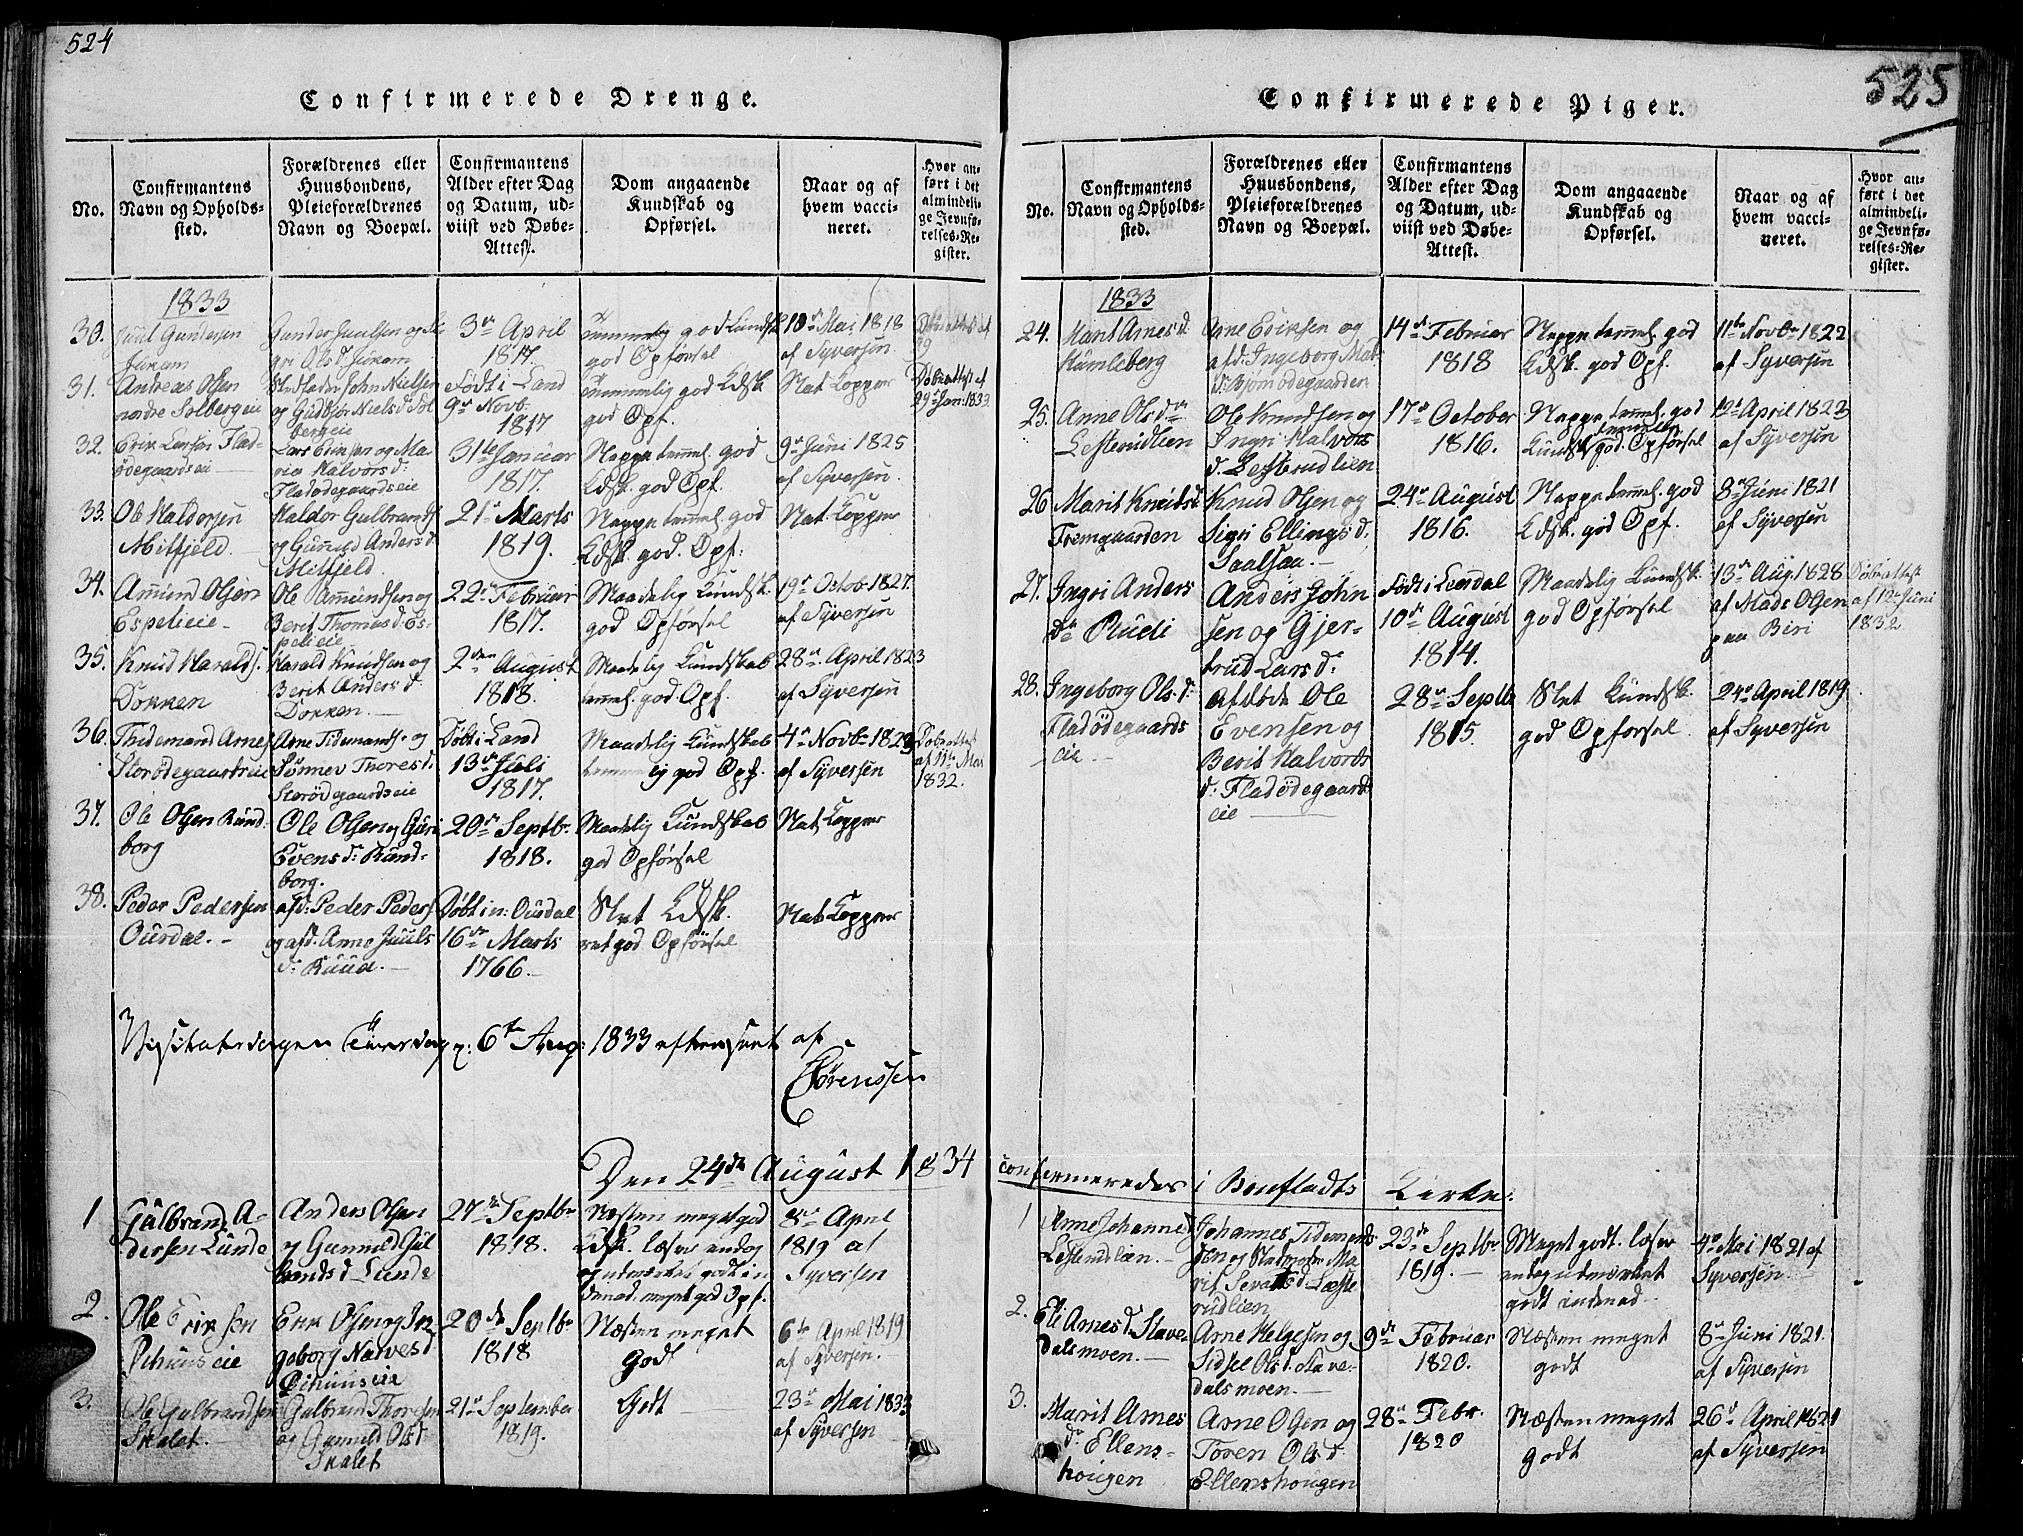 524
Confirmerede Drenge.
No.
Confirmantens Navn og Opholds-sted.
Forældrenes eller Huusbondens, Pleieforældrenes Navn og Boepæl.
Confirmantens Alder efter Dag og Datum, ud-viist ved Døbe-Attest.
Dom angaaende Kundskab og Opførsel.
Naar og af hvem vacci-neret.
Hvor an-ført i det almindeli-ge Jevnfø-relses-Re-gister.
1833
30.
Juul Gundersen
Gunder Juulsen og
Ols d.
3de April
1817.
god Kundsk
god Opførsel
10de Mai 1818
af Syversen.
31.
Andreas Olsen
nordre Solbergeie
Stedfader John Nielsen
og Gudbjør Niels d. Sol
bergeie
Født i Land
9de Novb.
1817
god Kdsk.
god Opf.
Nat. Kopper
Døbeattest af
29de Jan: 1833.
32.
Erik Larsen Flad-
ödegaardseie
Lars Eriksen og Ma
rie Halvors d.
Fladödegaardseie
31te Januar
1817.
Neppe temmel. god
Kdsk. god Opf.
9de Juni 1825
af Syversen.
33.
Ole Haldorsen
Mitfjeld.
Haldor Gulbrands
og Gunild Anders d.
Mitfjeld.
21de Marts
1819.
Neppe temmel. god
Kdsk. god. Opf:
Nat. Kopper
34.
Amund Olsen
Espelieie
Ole Amundsen og
Berit Thomas d. Es
pelieie
22de Februar
1817.
Maadelig Kundsk.
god Opførsel
19de Octob. 1827.
af Syversen
35.
Knud Haralds.
Dokken
Harald Knudsen og
Berit Anders d.
Dokken.
2den August
1818.
Maadelig Kundskab
temmel. god Opf.
28de April 1823
af Syversen
36.
Thidemand Arnes
Storödegaardseie
Arne Tidemands. og
Sönnev Thores d.
Storödegaardseie
Döbt i Land
13de Juli
1817.
Maadelig Kundskab
temmelig god Opf.
4de Novb. 1823
af Syversen
Döbeattest
af 11te Mai
1832.
37.
Ole Olsen Rund
borg
Ole Olsen og Guri
Evens d. Rund-
borg.
20de Septbr.
1818.
Maadelig Kundskab
god Opførsel
Nat. Kopper
38.
Peder Pedersen
Ourdal.
afd: Peder Peders
og afd. Anne Juuls
d. Ruud.
Døbt i n: Ourdal
16de Marts
1766.
Slet Kdsk.
ret god Opførsel
Nat. Kopper
Visitatsdagen Tiirsdag 6te Aug: 1833 efterseet af
Sørenssen
Den 24de August 1834
1
Gulbrand A-
dersen Lunde
Anders Olsen
og Gunnild Gul
brands d Lunde
27de Septbr
1818.
Næsten meget god
Kdsk. læser endog
og udmærket godt in
denad. meget god Opf.
8de April
1819 af
Syversen
2.
Ole Eriksen
Erik Olsen og In
geborg Halves d
20de Septbr
1818
Næsten meget
godt
6te April 1819
af Syversen.
3.
Ole Gulbrandsen
Skalet.
Gulbrand Thoresen
og Gunild Ols d.
Skalet
21de September
1819.
Godt
23de Mai 1833
af Syversen
525
Confirmerede Piger.
No.
Confirmantens Navn og Opholds-sted.
Forældrenes eller Huusbondens, Pleieforældrenes Navn og Boepæl.
Confirmantens Alder efter Dag og Datum, ud-viist ved Døbe-Attest.
Dom angaaende Kundskab og Opførsel.
Naar og af hvem vacci-neret.
Hvor an-ført i det almindeli-ge Jevnfø-relses-Re-gister.
1833
24.
Marit Arnes d.
Humleberg
Arne Eriksen og
afd. Ingeborg Mat
d. Bjornödegaarden
14de Februar
1818
Neppe temmel. god
Kdsk. god Opf.
11te Novbr 1822
af Syversen
25.
Anne Ols dr
Lesterudlien
Ole Knudsen og
Ingri Halvors
d. Lesterudlien
17de October
1816.
Neppe temmel. god
Kundsk. god Opførsel
12te April 1823
af Syversen
26
Marit Knuds d
Fremgaarden
Knud Olsen og
Sigri Ellings d.
Saalsaa.
24de August
1816.
Neppe temmel. god
Kdsk. god Opf.
8de Juni 1821
af Syversen
27.
Ingri Anders
dr Rudi
Anders John
sen og Gjer-
trud Lars d.
Födt i Lendal
10de August
1814.
Maadelig Kundsk.
god Opførsel
13de Aug. 1828
af Mads Olsen
paa Biri
Döbeattest
af 12te Juni
1832.
28.
Ingeborg Ols d.
Fladödegaards
eie
Afdöde Ole
Evensen og
Berit Halvords
d. Fladödegaards
eie
28de Septb
1815.
Slet Kundsk.
god Opforsel
24de April 1819.
af Syversen
confermeredes i Brufladts Kirke.
1
Anne Johannes
Lesterudlien.
Johannes Tidemands
sen og Stedmoder Ma
rit Sevats d. Leste
rudlien
23de Septbr
1819.
Meget godt. læser
endog udmerket
godt indenad
4de Mai 1821 af
Syversen
2.
Eli Arnes d. Slave
dalsmoen.
Arne Helgesen og
Sidsel Ols d. Slave-
dalsmoen.
9de Februar
1820.
Næsten meget
godt
8de Juni 1821.
af Syversen
3.
Marit Arnes
dr Ellens-
hougen
Arne Olsen og
Toren Ols d.
Ellenshougen
28de Febr.
1820
Næsten meget
godt
26de April 1821
af Syversen